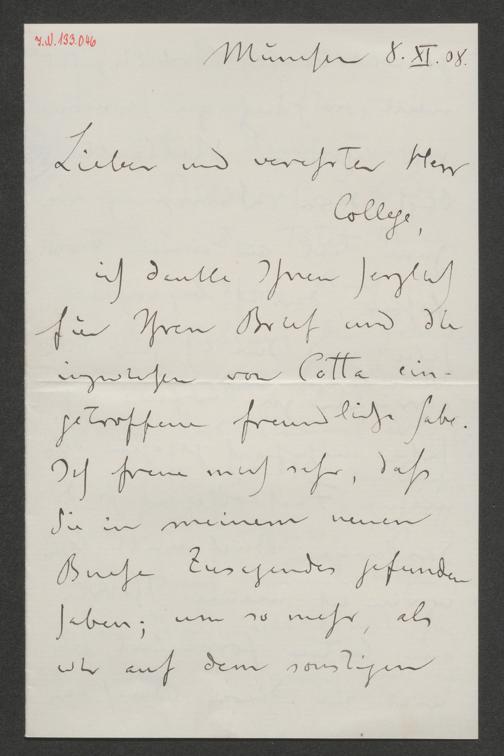 J.N. 193.046
München 8. XI. 08.
Lieber und verehrter Herr
College,
ich danke Ihnen herzlich
für Ihren Brief und die
inzwischen von Cotta ein-
getroffene freundliche Gabe.
Ich freue mich sehr, daß
Sie in meinem neuen
Buche Zusagendes gefunden
haben; um so mehr, als
wir auf dem sonstigen